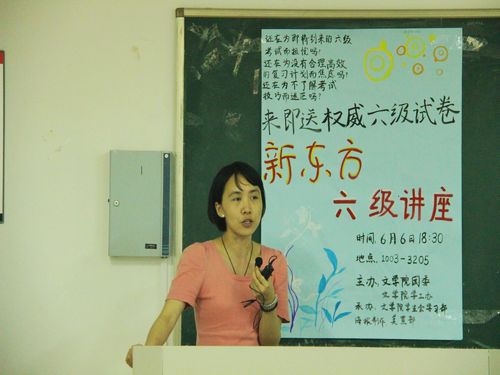 还在为即将到来的六级
考试而担忧吗?
还在为没有合理高效
的复习计划而焦虑吗?
还在为不了解考试
技巧而迷茫吗?
来即送权威六级试卷
新东方
六级讲座
时间:6月6日18:30
地点:1003-3205
主办:文学院团委
文学院学工办
承办:文学院学生会学习部
海报制作 美宣部